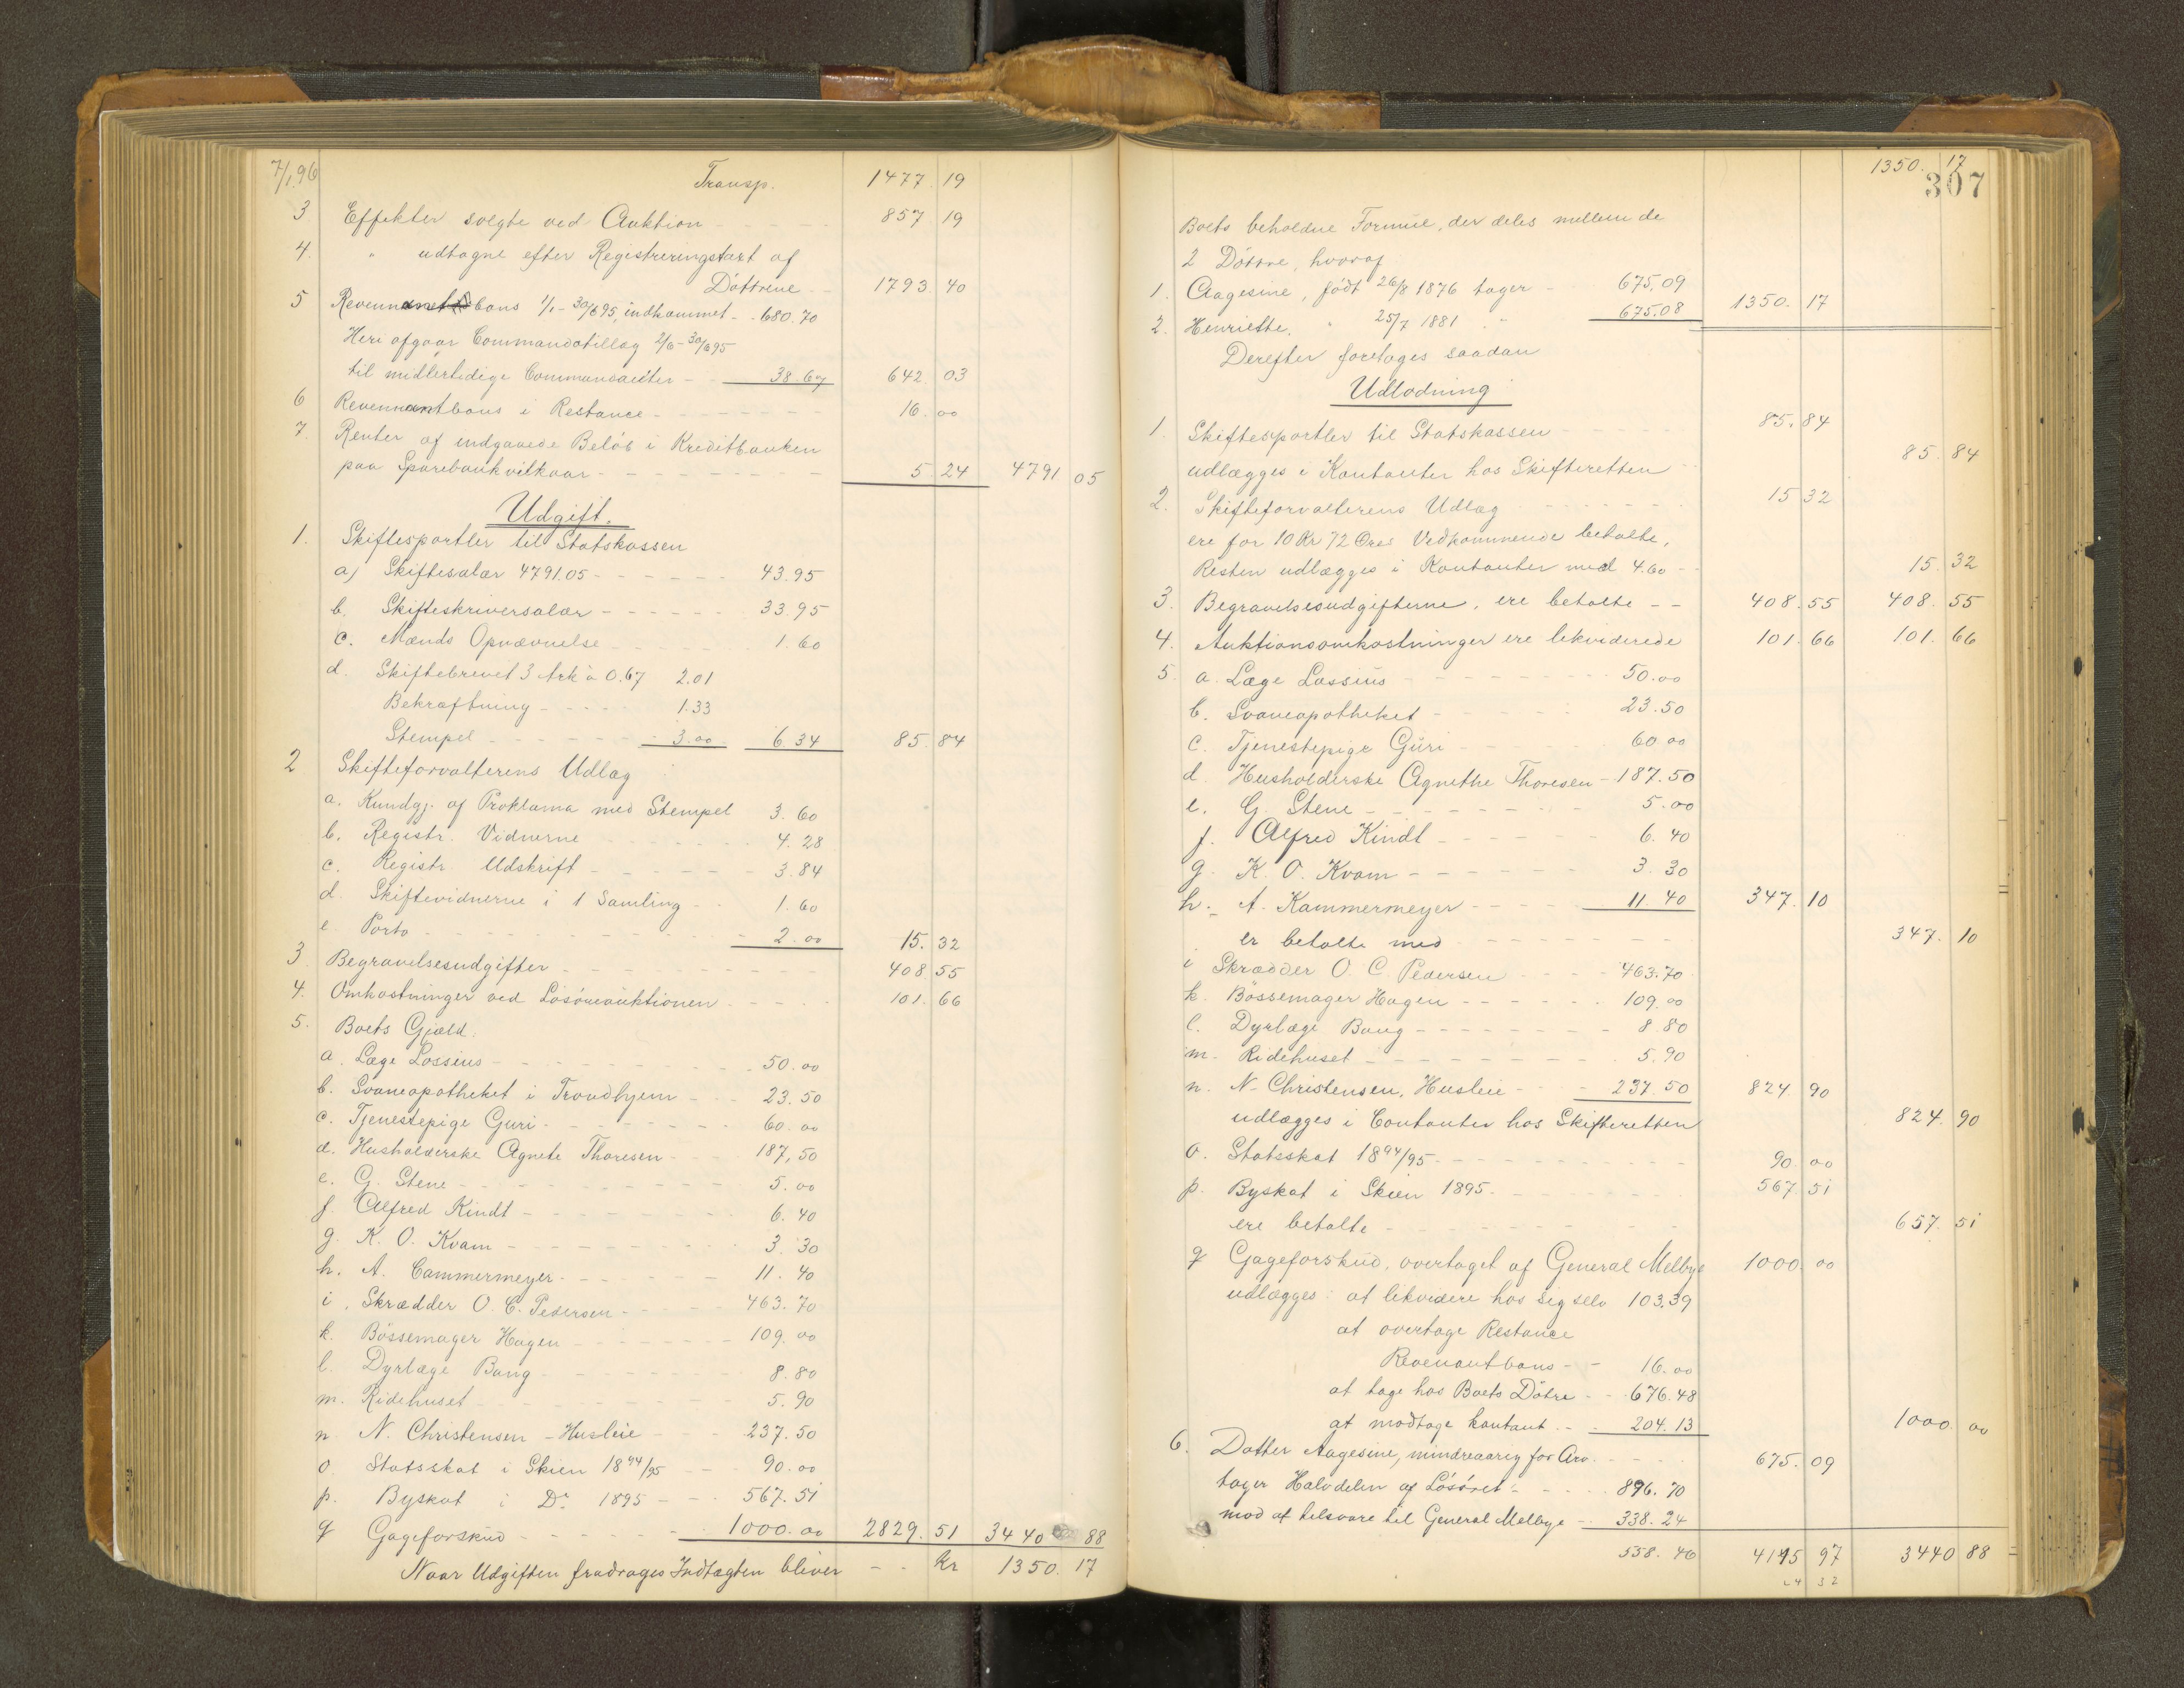 7/1.96 Transp. 1477. 19
3. Effekter solgte ved Auktion 857 19
4. " udtagne efter Registreringstaxt af
Döttrene 1793. 40
5 bons 1/1 - 30/6 95, indkommet - 680.70
Heri afgaar Commandotillæg 2/6 - 30/6 95
til midlertidige - 38.67 642. 03
6 Revennantbons i Restance - 16. 00
7. Renter af indgaaede Beløb i Kreditbanken
paa Sparebankvilkaar - 5. 24 4791 05
Udgift.
1. Skiftesportler til Statskassen
a) Skiftesalær 4791.05 - 43.95
b. Skifteskriversalær - 33.95
c. Mænds Opnævnelse 1.60
d. Skiftebrevet 3 Ark à 0.67 2.01
Bekræftning - 1.33
Stempel - 3.00 6.34 85. 84
2 Skifteforvalterens Udlæg
a. Kundgj. af Proklama med Stempel 3.60
b. Registr. Vidnerne 4.28
c. Registr. Udskrift - 3.84
d. Skiftevidnerne i 1 Samling - 1.60
e. Porto - 2.00 15. 32
3 Begravelsesudgifter - 408 55
4. Omkostninger ved Lösöreauktionen - 101. 66
5. Boets Gjæld.
a. Læge Lossius - 50.00
b. Svaneapotheket i Trondhjem - 23.50
c. Tjenestepige Guri - 60.00
d. Husholderske Agnete Thoresen - 187,50
e. G. Stene - 5.00
f. Alfred Kindt - 6.40
g. K. O. Kvam - 3.30
h. A. Cammermeyer - 11.40
i. Skrædder O. C. Pedersen - 463.70
k. Bössemager Hagen - 109.00
l. Dyrlæge Bang - 8.80
m. Ridehuset - 5.90
n. N. Christensen - Husleie - 237.50
o. Statsskat i Skien 1894/95 - 90.00
p. Byskat i Do 1895 - 567.51
q Gageforskud - 1000.00 2829. 51 3440 88
Naar Udgiften fradrages Indtægten bliver - kr 1350. 17
1350. 17
307
Boets beholdne Formue, der deles mellem de
2 Döttre, hvoraf
1. Aagesine, født 26/8 1876 tager - 675.09
2. Henriette, " 25/7 1881 " - 675.08 1350. 17
Derefter foretages saadan
Udlodning
1. Skiftesportler til Statskassen - 85. 84
udlægges i Kontanter hos Skifteretten - 85. 84
2. Skifteforvalterens Udlæg - 15 32
ere for 10 Kr 72 Øres Vedkommende betalte,
Resten udlægges i Kontanter med 4.60 - 15. 32
3. Begravelsesudgifterne, ere betalte - 408. 55 408. 55
4. Auktionsomkostninger ere likviderede 101. 66 101. 66
5. a. Læge Lossius - 50.00
b. Svaneapotheket - 23.50
c. Tjenestepige Guri - 60.00
d. Husholderske Agnethe Thoresen - 187.50
e. G. Stene - 5.00
f. Alfred Kindt - 6.40
g. K. O. Kvam - 3.30
h. A. Kammermeyer - 11.40 347. 10
er betalte med - 347. 10
i Skrædder O. C. Pedersen - 463.70
k. Bössemager Hagen - 109.00
l. Dyrlæge Bang - 8.80
m. Ridehuset - 5.90
n. N. Christensen, Husleie - 237.50 824. 90
udlægges i Contanter hos Skifteretten 824. 90
o. Statsskat 1894/95 - 90. 00
p. Byskat i Skien 1895. - 567. 51
ere betalte - 657. 51
q Gageforskud, overtaget af General Melbye 1000. 00
udlægges: at likvidere hos sig selv 103.39
at overtage Restance
Revenantbons - 16.00
at tage hos Boets Döbre - 676.48
at modtage kontant - 204.13 1000. 00
6. Datter Aagesine, mindreaarig for Arv - 675. 09
tager Halvdelen af Lösöret - 896.70
mod at tilsvare til General Melbye - 338.24
558.46 4195 97 3440 88